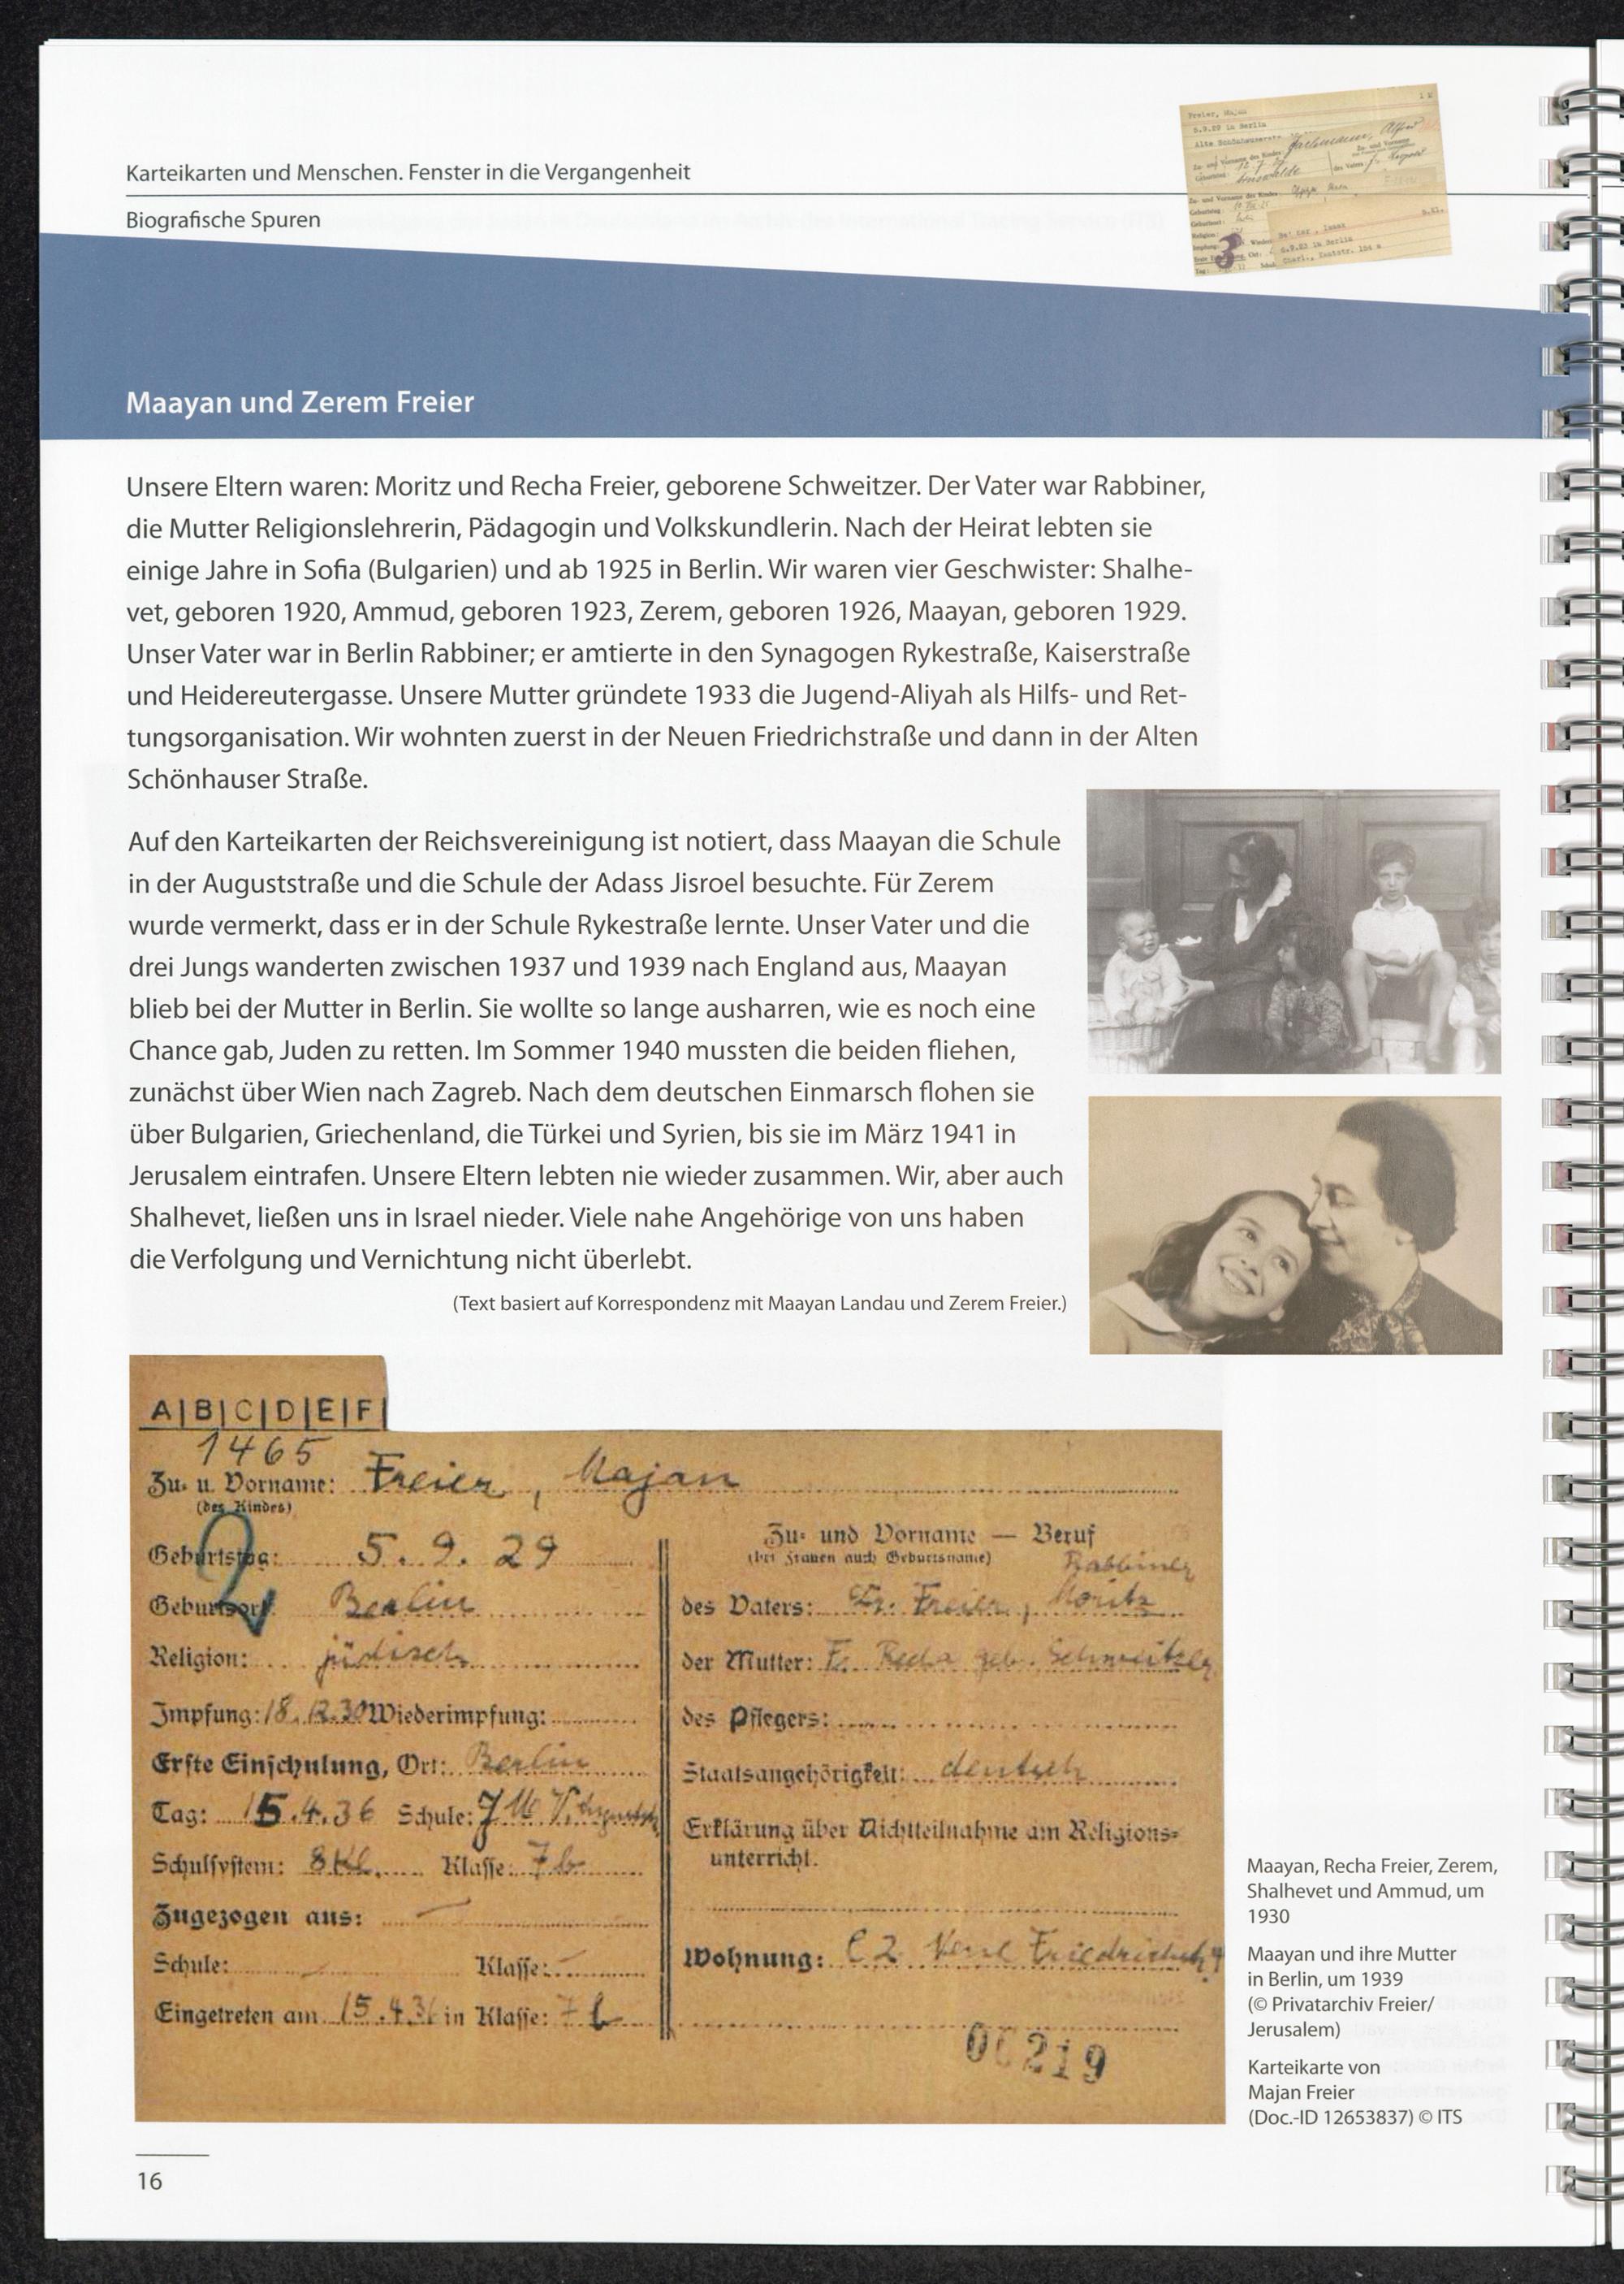 Karteikarten und Menschen. Fenster in die Vergangenheit
Biografische Spuren
Freier, Majan
5.9.29 in Berlin
Maayan und Zerem Freier
Unsere Eltern waren: Moritz und Recha Freier, geborene Schweitzer. Der Vater war Rabbiner,
die Mutter Religionslehrerin, Pädagogin und Volkskundlerin. Nach der Heirat lebten sie
einige Jahre in Sofia (Bulgarien) und ab 1925 in Berlin. Wir waren vier Geschwister: Shalhe-
vet, geboren 1920, Ammud, geboren 1923, Zerem, geboren 1926, Maayan, geboren 1929.
Unser Vater war in Berlin Rabbiner; er amtierte in den Synagogen Rykestraße, Kaiserstraße
und Heidereutergasse. Unsere Mutter gründete 1933 die Jugend-Aliyah als Hilfs- und Ret-
tungsorganisation. Wir wohnten zuerst in der Neuen Friedrichstraße und dann in der Alten
Schönhauser Straße.
Auf den Karteikarten der Reichsvereinigung ist notiert, dass Maayan die Schule
in der Auguststraße und die Schule der Adass Jisroel besuchte. Für Zerem
wurde vermerkt, dass er in der Schule Rykestraße lernte. Unser Vater und die
drei Jungs wanderten zwischen 1937 und 1939 nach England aus, Maayan
blieb bei der Mutter in Berlin. Sie wollte so lange ausharren, wie es noch eine
Chance gab, Juden zu retten. Im Sommer 1940 mussten die beiden fliehen,
zunächst über Wien nach Zagreb. Nach dem deutschen Einmarsch flohen sie
über Bulgarien, Griechenland, die Türkei und Syrien, bis sie im März 1941 in
Jerusalem eintrafen. Unsere Eltern lebten nie wieder zusammen. Wir, aber auch
Shalhevet, ließen uns in Israel nieder. Viele nahe Angehörige von uns haben
die Verfolgung und Vernichtung nicht überlebt.
(Text basiert auf Korrespondenz mit Maayan Landau und Zerem Freier.)
A|B|C|D|E|F|
1465
Zu- u. Vorname: Freier, Majan
(des Kindes)
2
Geburtstag: 5. 9. 29
Geburtsort: Berlin
Religion: jüdisch
Impfung: 18.12.30 Wiederimpfung:
Erste Einschulung, Ort: Berlin
Tag: 15.4.36 Schule:
Schulsystem: 8Kl. Klasse: 7b
Zugezogen aus: —
Schule: Klasse:
Eingetreten am 15.4.36 in Klasse: 7b
Zu- und Vorname — Beruf
(bei Frauen auch Geburtsname)
Rabbiner
des Vaters: Dr. Freier, Moritz
der Mutter: Fr. Recha geb. Schweitzer
des Pflegers:
Staatsangehörigkeit: deutsch
Erklärung über Nichtteilnahme am Religions-
unterricht.
Wohnung: C2 Neue Friedrichstr. 4
00219
Maayan, Recha Freier, Zerem,
Shalhevet und Ammud, um
1930
Maayan und ihre Mutter
in Berlin, um 1939
(© Privatarchiv Freier/
Jerusalem)
Karteikarte von
Majan Freier
(Doc.-ID 12653837) © ITS
16